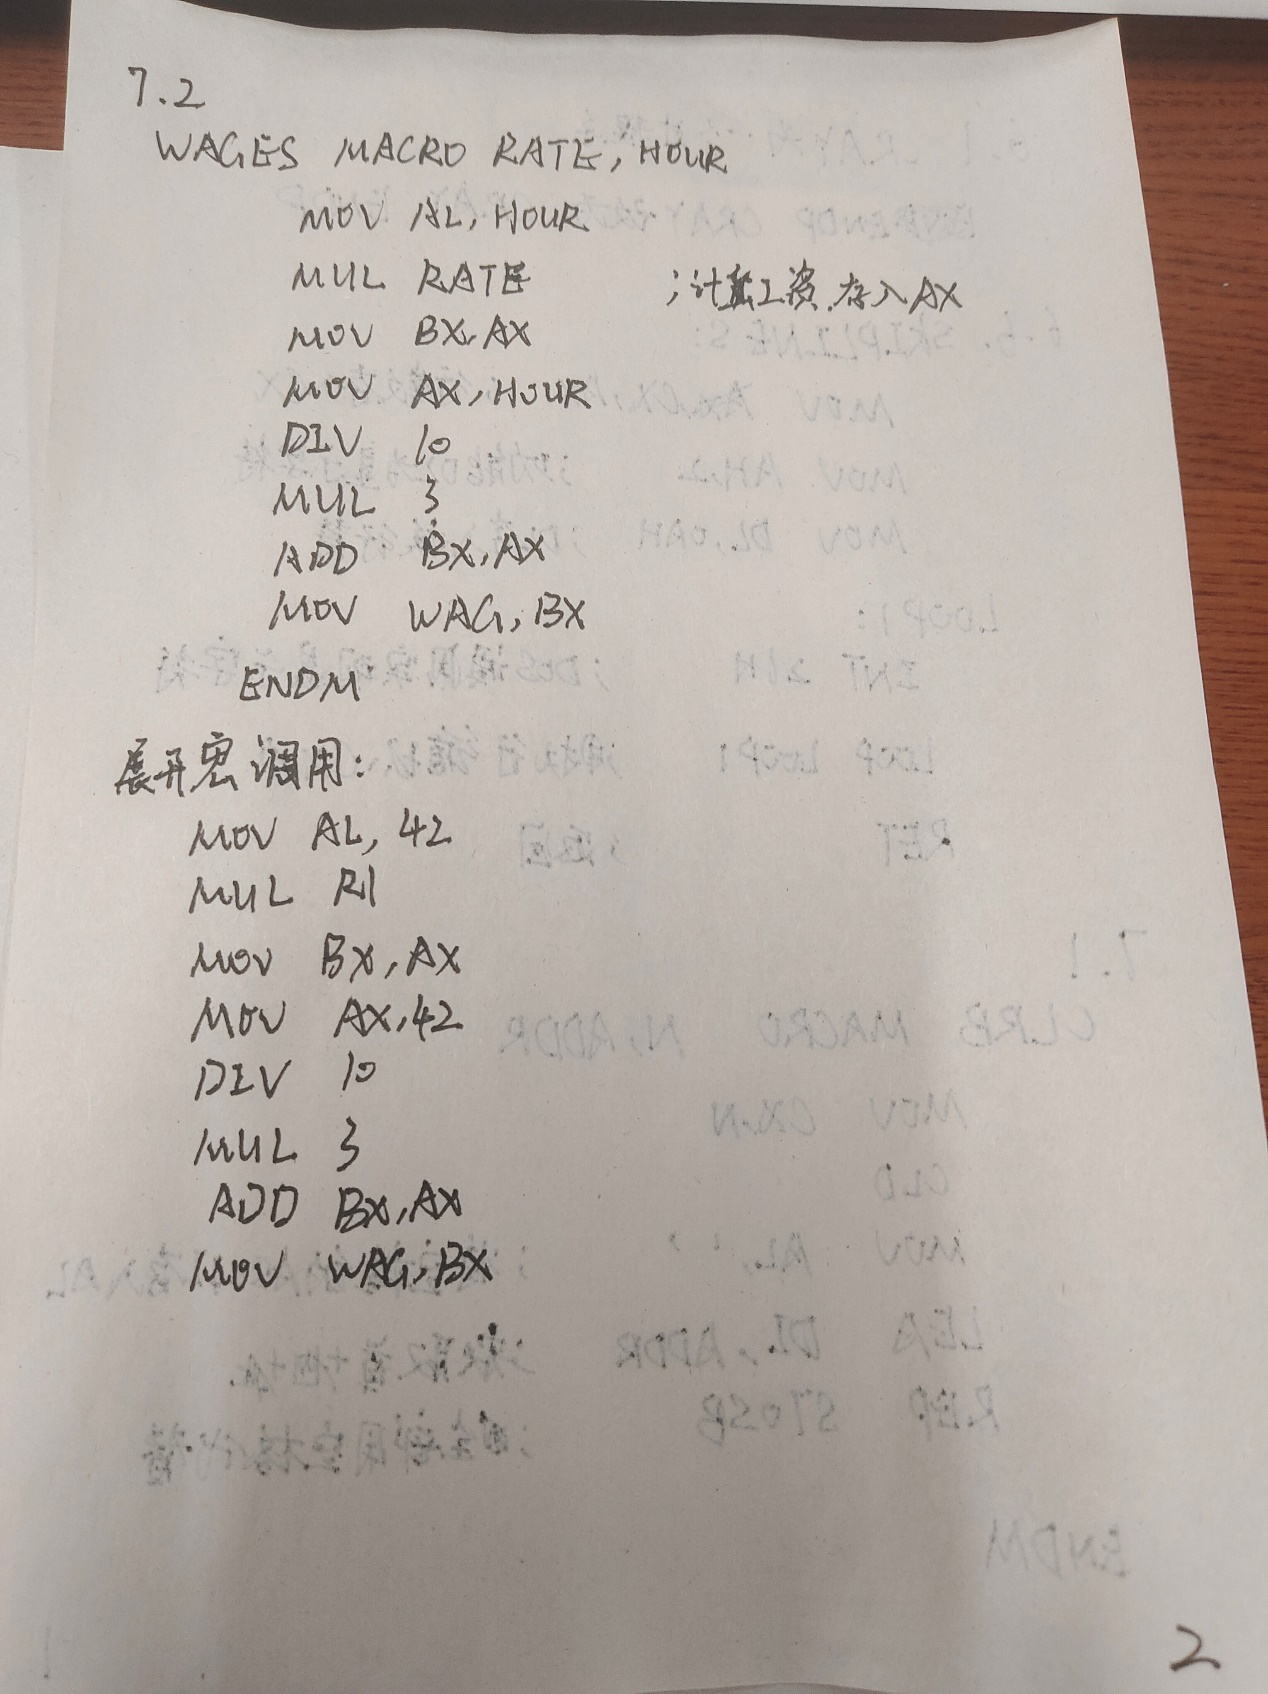 7.2
WAGES MACRO RATE, HOUR
MOV AL, HOUR
MUL RATE ;计算工资.存入AX
MOV BX, AX
MOV AX, HOUR
DIV 10
MUL 3
ADD BX, AX
MOV WAG, BX
ENDM
展开宏调用:
MOV AL, 42
MUL R1
MOV BX, AX
MOV AX, 42
DIV 10
MUL 3
ADD BX, AX
MOV WAG, BX
2